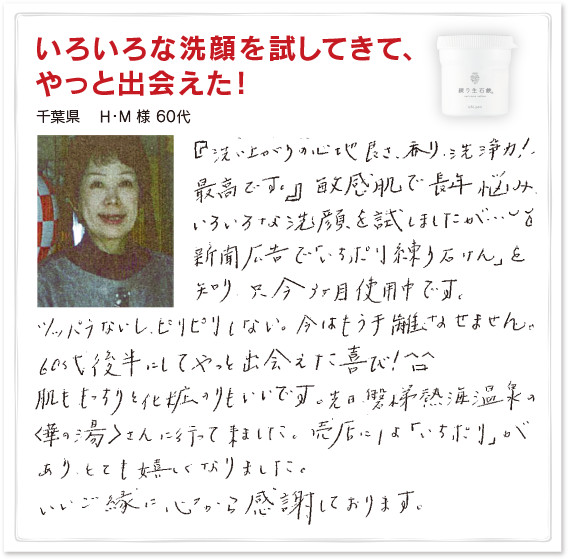 いろいろな洗顔を試してきて、
やっと出会えた！
千葉県　H・M 様 60代
練り生石鹸
『洗い上がりの心地良さ、香り、洗浄力!
最高です。』敏感肌で長年悩み
いろいろな洗顔を試しましたが…
新聞広告で「いちぼり練り石けん」を
知り、只今3ヶ月使用中です。
ツッパラないし、ピリピリしない。今はもう手離なせません。
60代後半にしてやっと出会えた喜び!^^
肌ももっちりと化粧のりもいいです。先日、磐梯熱海温泉の
〈華の湯〉さんに行って来ました。売店には「いちぼり」が
あり、とても嬉しくなりました。
いいご縁に心から感謝しております。